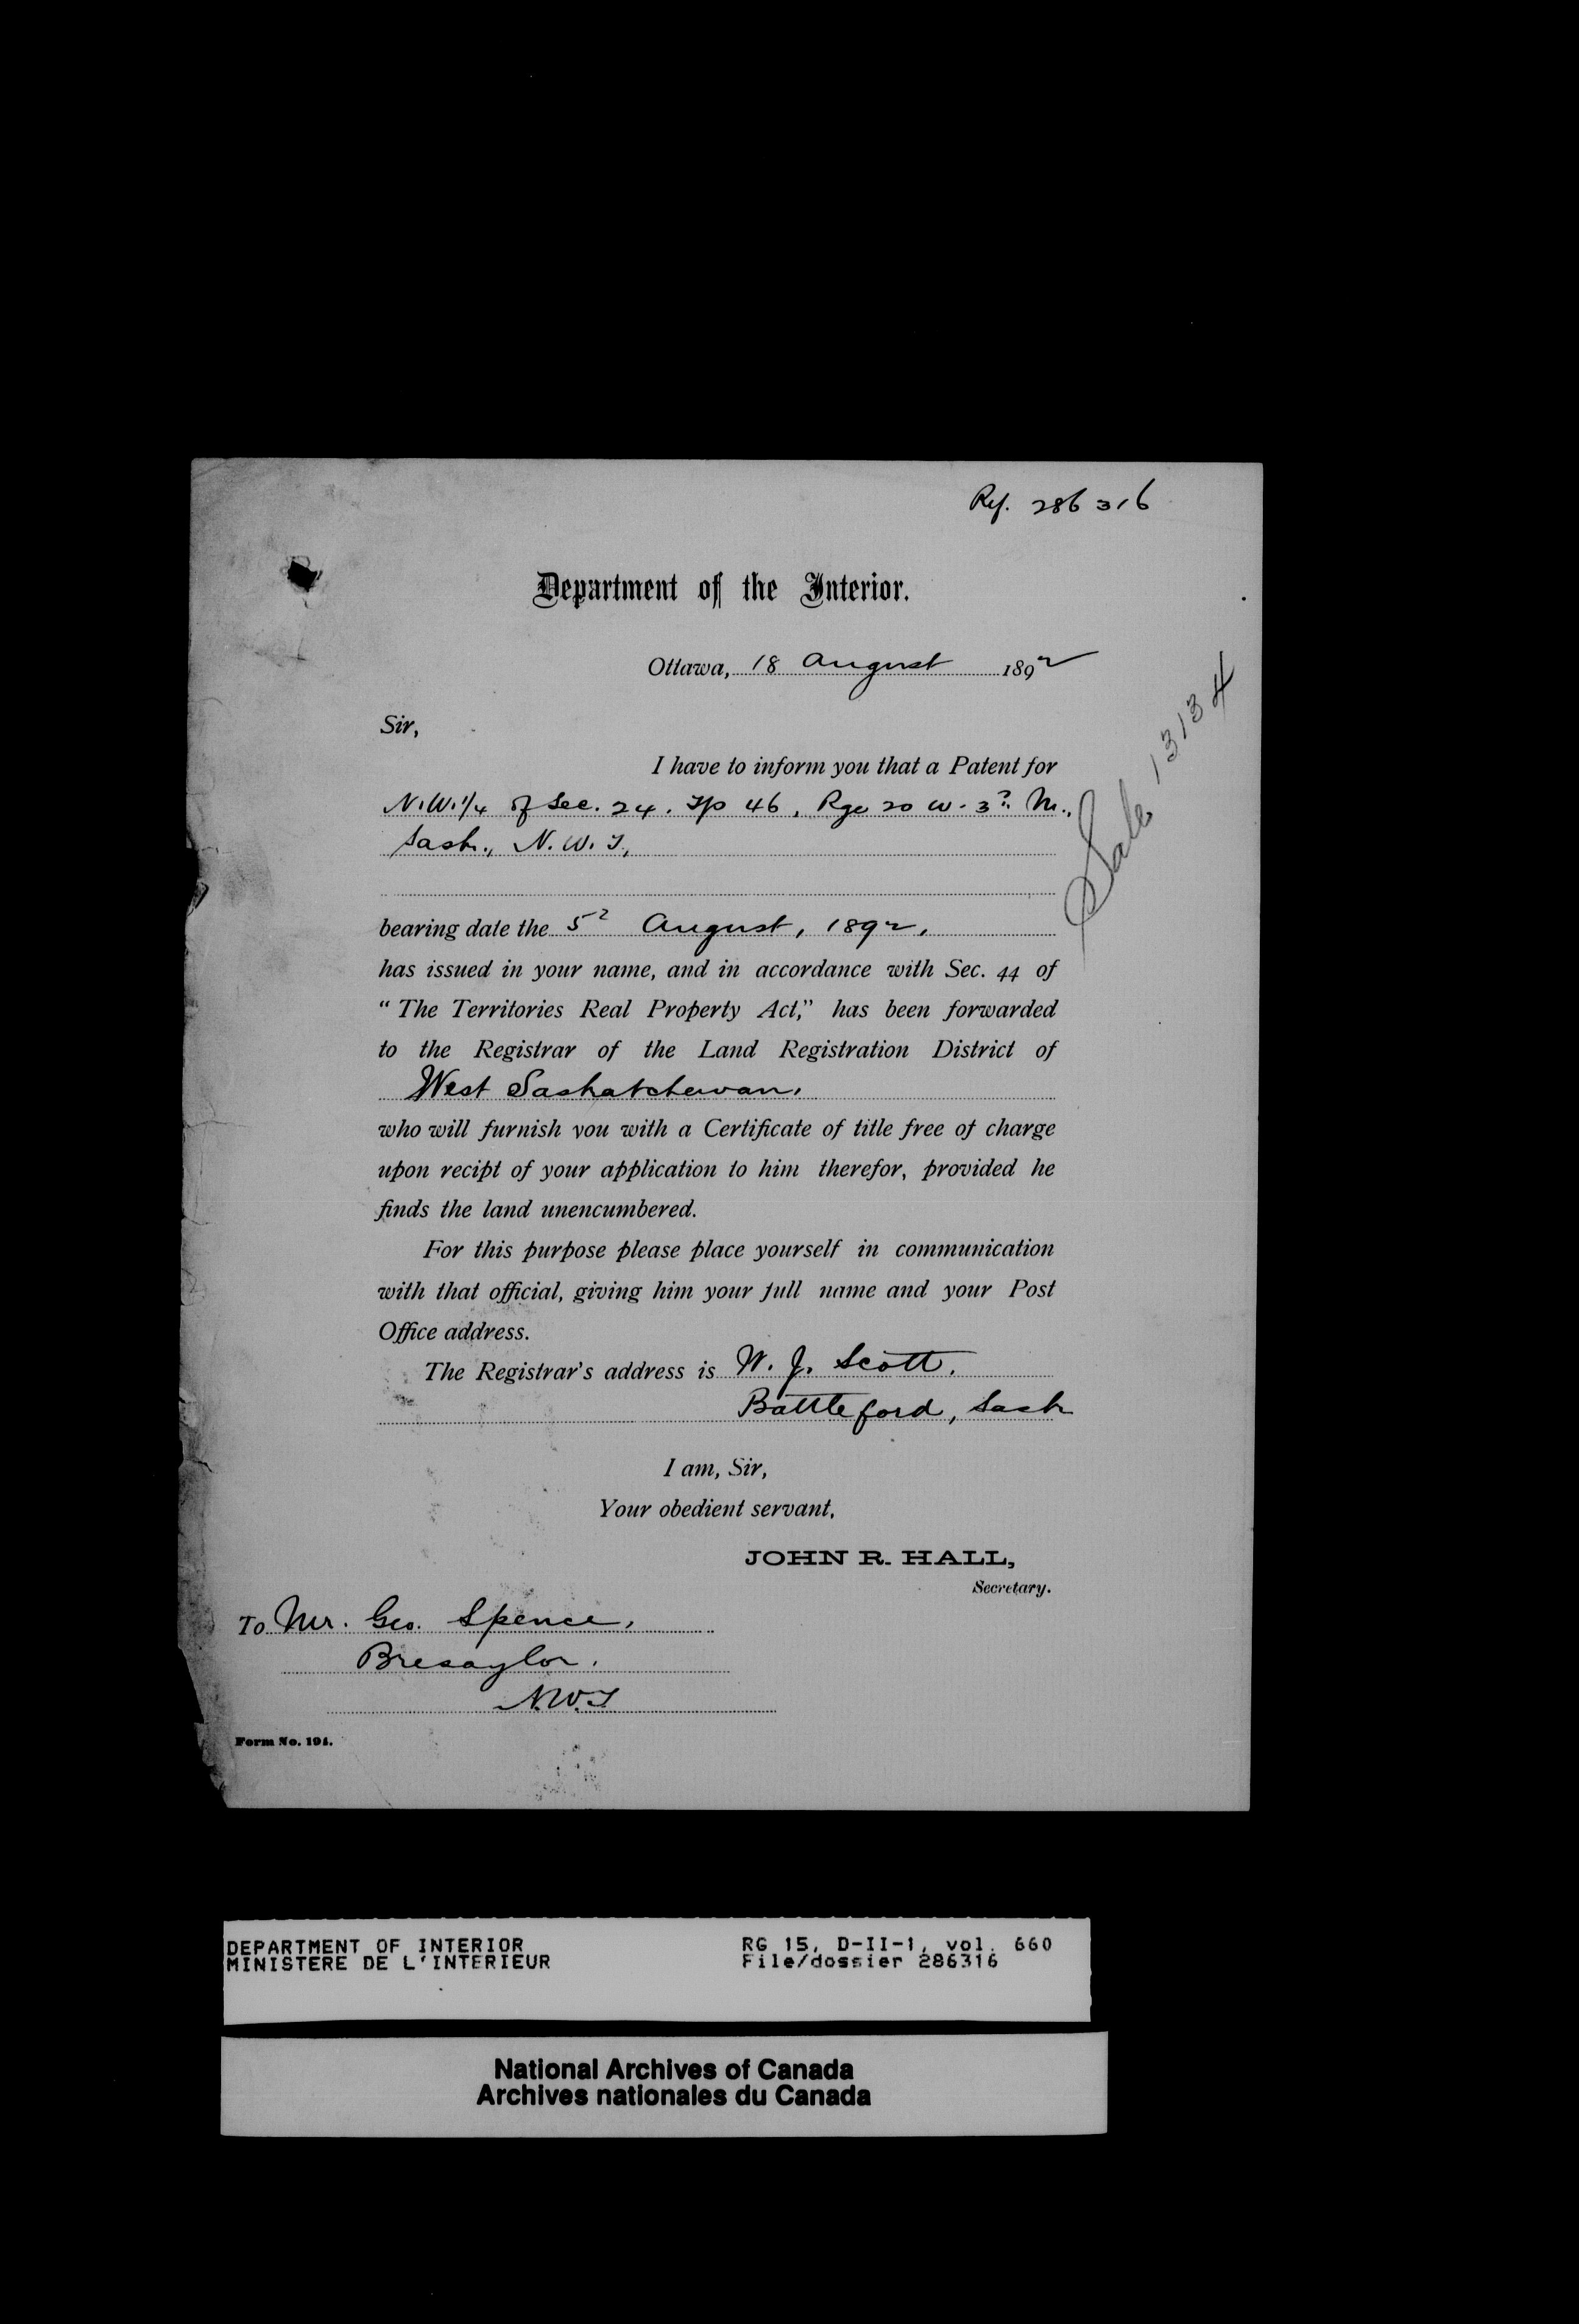 Ref. 286316
Department of the Interior.
Ottawa, 18 August 1892
Sir,
I have to inform you that a Patent for
N.W. 1/4 of Sec. 24. Tp 46, Rge 20 W. 3rd M.,
Sask., N.W.T,
Sale 13134
bearing date the 5th August, 1892,
has issued in your name, and in accordance with Sec. 44 of
“ The Territories Real Property Act,” has been forwarded
to the Registrar of the Land Registration District of
West Saskatchewan,
who will furnish you with a Certificate of title free of charge
upon recipt of your application to him therefor, provided he
finds the land unencumbered.
For this purpose please place yourself in communication
with that official, giving him your full name and your Post
Office address.
The Registrar's address is W. J. Scott.
Battleford, Sask
I am, Sir,
Your obedient servant,
JOHN R. HALL,
Secretary.
To Mr. Geo. Spence,
Bresaylor.
N.W.T
Form No. 194.
DEPARTMENT OF INTERIOR
MINISTERE DE L'INTERIEUR
RG 15, D-II-1, vol. 660
File/dossier 286316
National Archives of Canada
Archives nationales du Canada